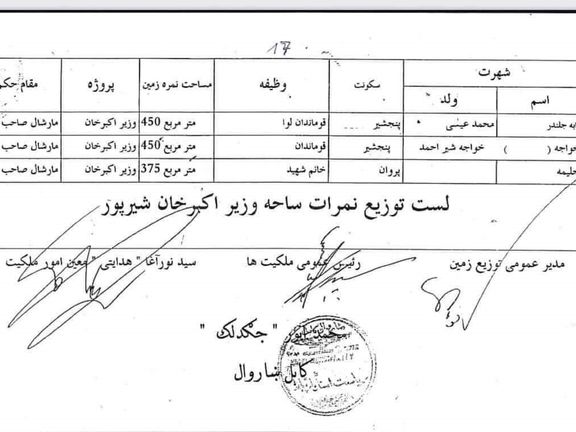 17
شهرت
اسم ولد سکونت وظیفه مساحت نمره زمین پروژه مقام حکم
به جلندر محمد عیسی پنجشیر قوماندان لوا 450 متر مربع وزیر اکبرخان مارشال صاحب
خواجه ( ) خواجه شیر احمد پنجشیر قوماندان 450 متر مربع وزیر اکبرخان مارشال صاحب
حلیمه پروان خانم شهید 375 متر مربع وزیر اکبرخان مارشال صاحب
لست توزیع نمرات ساحه وزیر اکبرخان شیرپور
مدیر عمومی توزیع زمین رئیس عمومی ملکیت ها سید نورآغا " هدایتی " معین امور ملکیت
" جگدلک "
کابل ښاروال